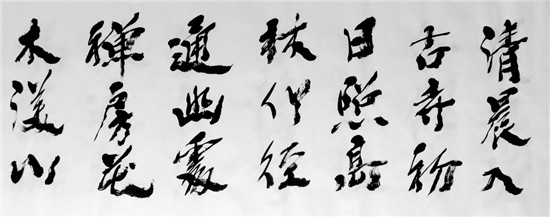 清晨入
古寺初
日照高
林竹径
通幽處
禪房花
木深山